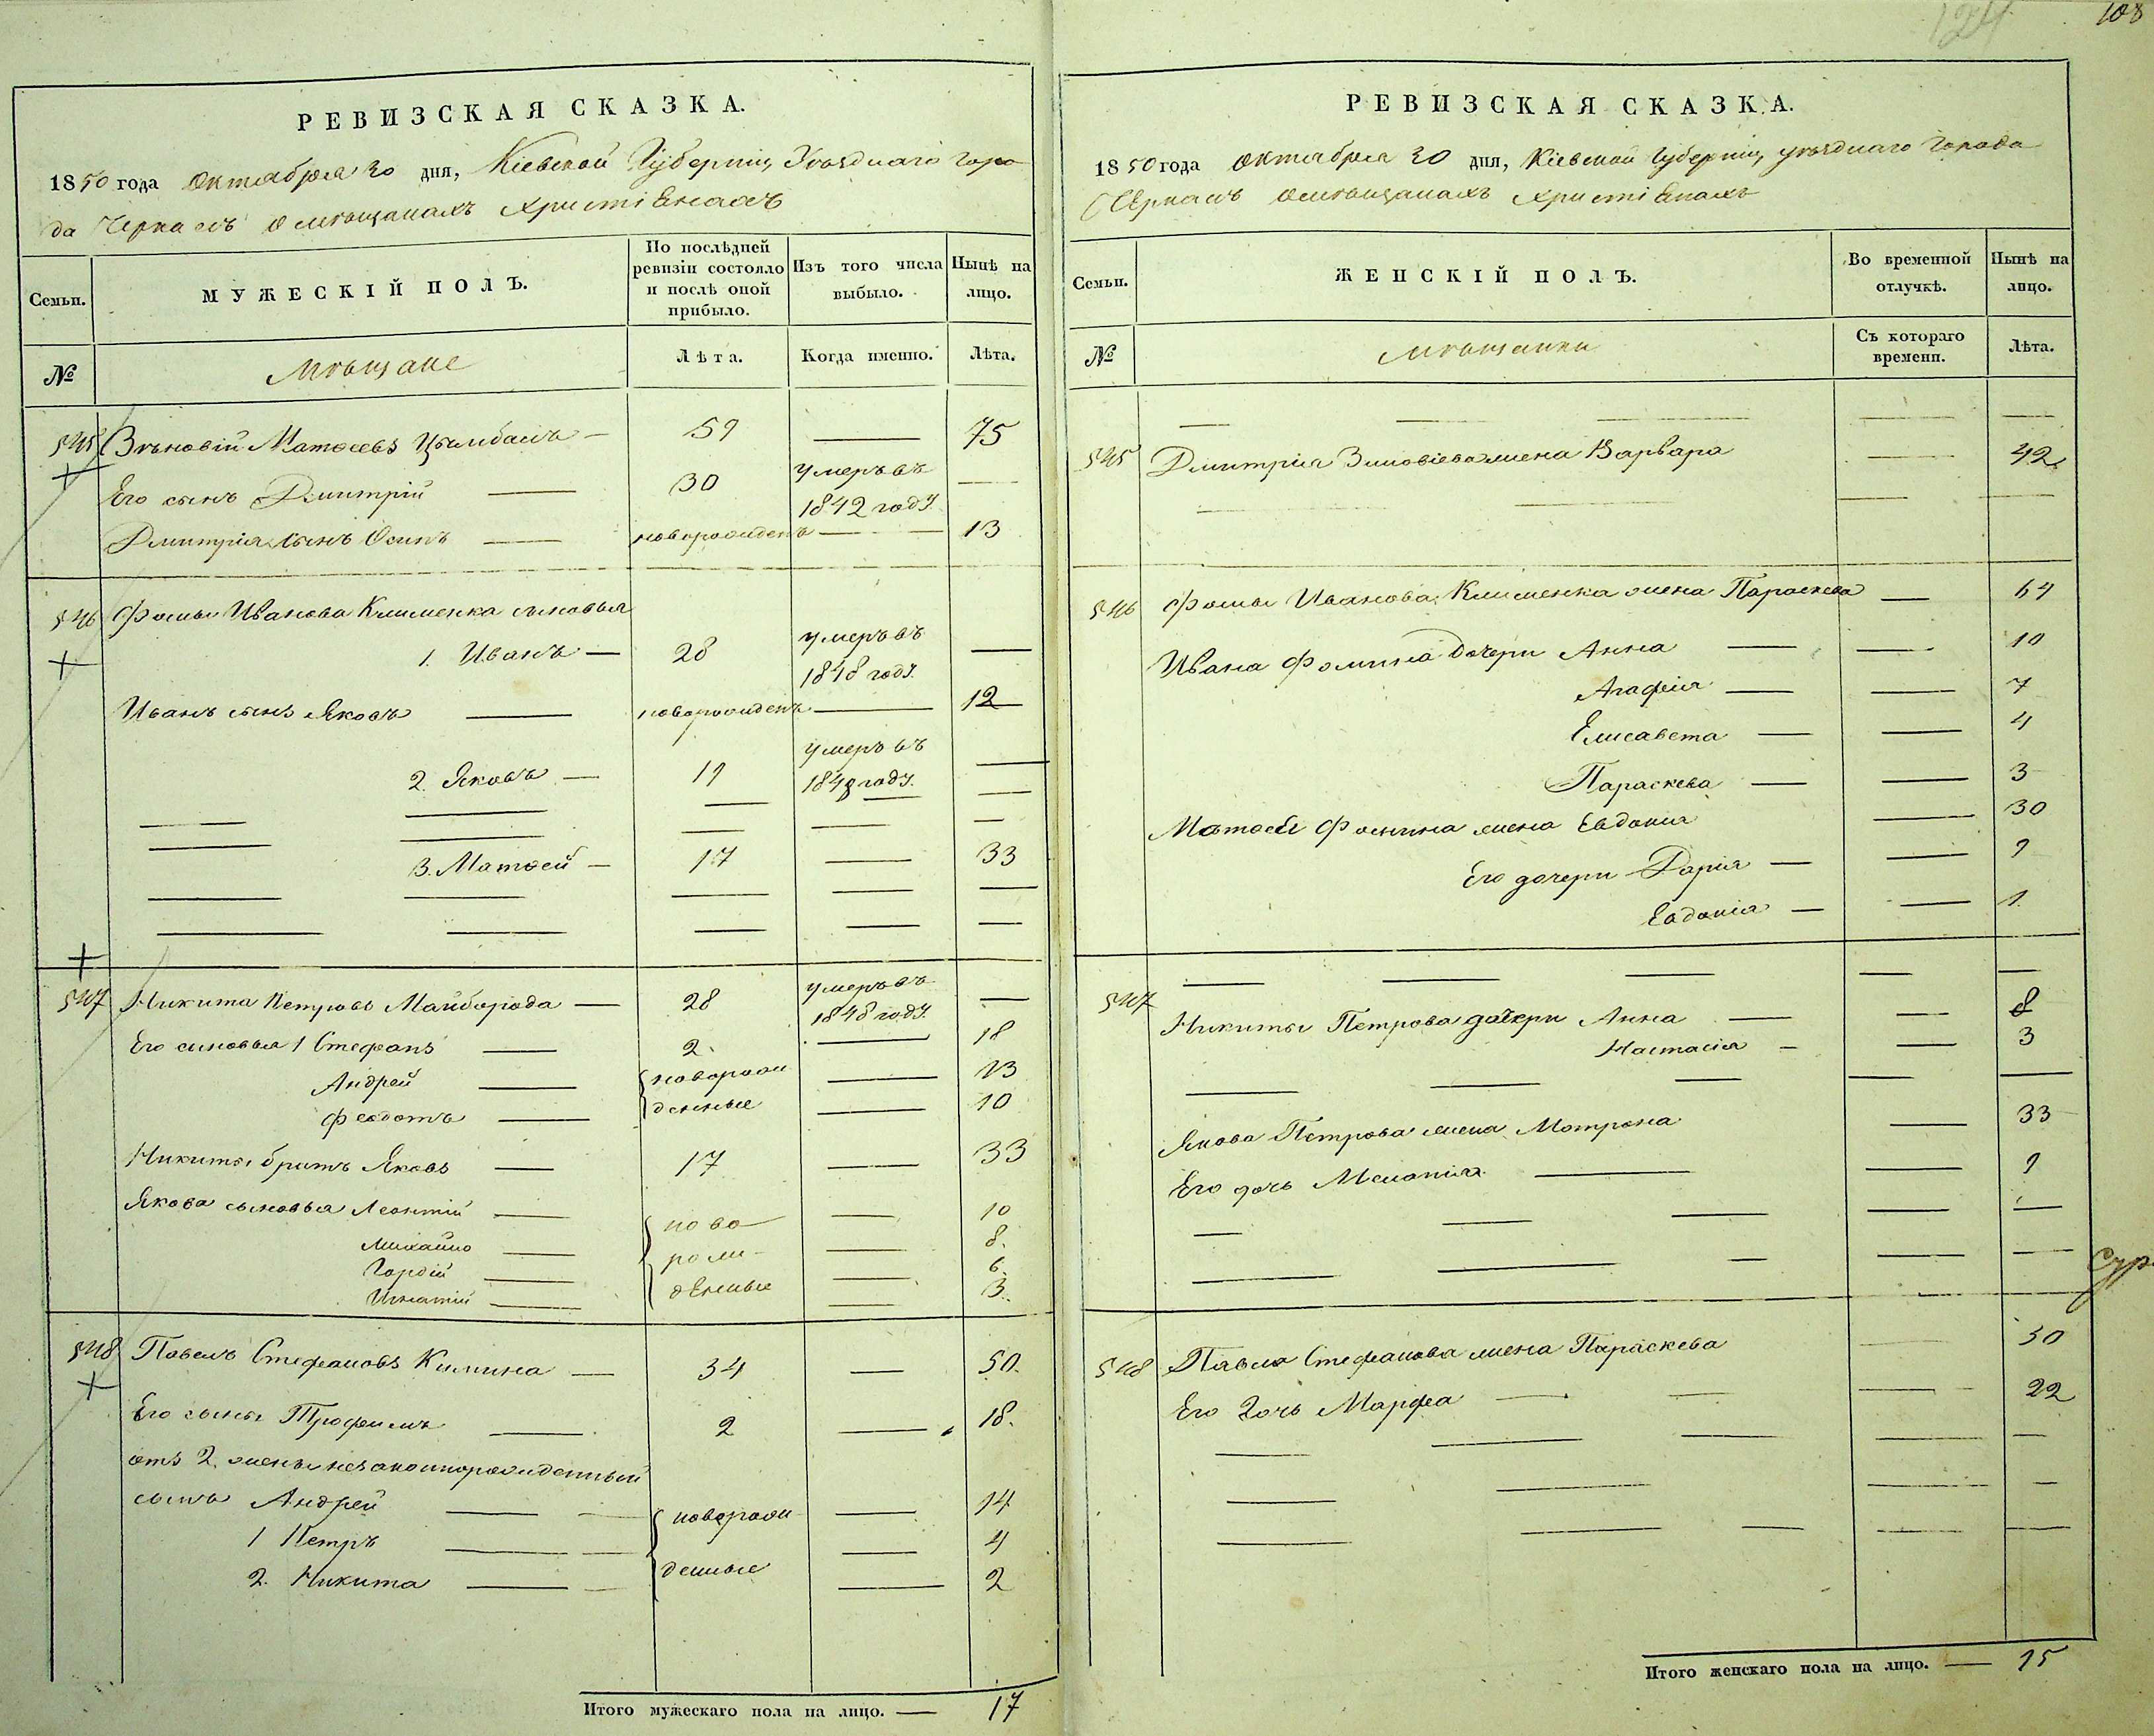 108
124
РЕВИЗСКАЯ СКАЗКА.
1850 года Октября 20 дня, Кіевской Губерніи, Уѣзднаго горо
да Черкасъ о мѣщанахъ Христіянахъ
Семьи.
МУЖЕСКІЙ ПОЛЪ.
По послѣдней ревизіи состояло и послѣ оной прибыло.
Изъ того числа выбыло.
Нынѣ на лицо.
№
Мѣщане
Лѣта.
Когда именно.
Лѣта.
545 Зѣновій Матѳеевъ Цымбалъ — 59 — 75
Его сынъ Дмитрій — 30 умеръ въ 1842 году —
Дмитрія сынъ Осипъ — новорожденъ — 13
546 Фомы Иванова Клименка сыновья
1. Иванъ — 28 умеръ въ 1848 году. —
Иванъ сынъ Яковъ — новорожденъ — 12
2. Яковъ — 19 умеръ въ 1848 году. —
3. Матѳей — 17 — 33
547 Никита Петровъ Майборода — 28 умеръ въ 1848 году. —
Его сыновья 1 Стефанъ — 2. — 18
Андрей — новорож — 13
Феодотъ — денные — 10
Никиты братъ Яковъ — 17 — 33
Якова сыновья Леонтій — ново — 10
Михайло — рож — 8.
Гордій — 6.
Игнатій — денные — 3.
548 Павелъ Стефановъ Кимина — 34 — 50.
Его сыны Трофимъ — 2 — 18.
отъ 2. жены незаконнорожденный
сынъ Андрей — новорож — 14
1 Петръ — 4
2. Никита — денные — 2
Итого мужескаго пола на лицо. — 17
РЕВИЗСКАЯ СКАЗКА.
1850 года Октября 20 дня, Кіевской Губерніи, уѣзднаго Города
Черкасъ о мѣщанахъ Христіянахъ
Семьи.
ЖЕНСКІЙ ПОЛЪ.
Во временной отлучкѣ.
Нынѣ на лицо.
№
Мѣщанки
Съ котораго времени.
Лѣта.
545 Дмитрія Зиновіева жена Варвара — 42
546 Фомы Иванова Клименка жена Параскева — 64
Ивана Фомина дочери Анна — 10
Агафія — 7
Елисавета — 4
Параскева — 3
Матѳея Фомина жена Евдокія — 30
Его дочери Дарія — 9
Евдокія — 1
547 Никиты Петрова дочери Анна — 8
Настасія — 3
Якова Петрова жена Матрона — 33
Его дочь Меланія — 9
Сур
548 Павла Стефанова жена Параскева — 30
Его дочь Марфа — 22
Итого женскаго пола на лицо. — 15